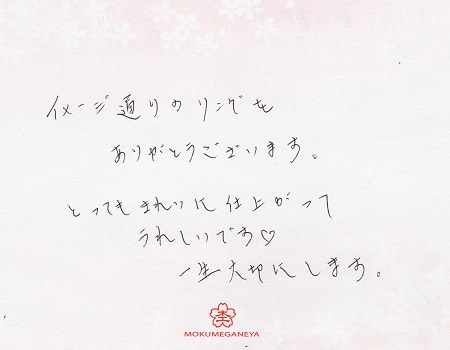 イメージ通りのリングを
ありがとうございます。
とってもきれいに仕上がって
うれしいです♡
一生大切にします。
MOKUMEGANEYA